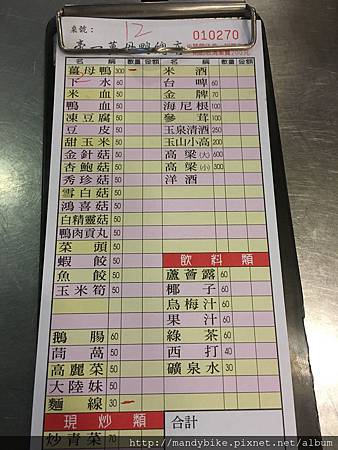 桌號： 12
010270
壹一薑母鴨總店
名稱 數量 金額 名稱 數量 金額
薑母鴨 300 一 米酒
下水 60 台啤 60
米血 50 金牌 70
鴨血 50 海尼根 100
凍豆腐 50 參茸 100
豆皮 50 玉泉清酒 250
甜玉米 50 玉山小高 200
金針菇 50 高粱(大) 600
杏鮑菇 50 高粱(小) 300
秀珍菇 50 洋酒
雪白菇 50
鴻喜菇 50
白精靈菇 50
鴨肉貢丸 50
菜頭 50
蝦餃 50 飲料類
魚餃 50 蘆薈露 60
玉米筍 50 椰子 60
烏梅汁 60
果汁 60
鵝腸 60 綠茶 60
茼萵 50 西打 40
高麗菜 50 礦泉水 30
大陸妹 50
麵線 30 一
現炒類 合計
炒青菜 70
http://mandybike.pixnet.net/album